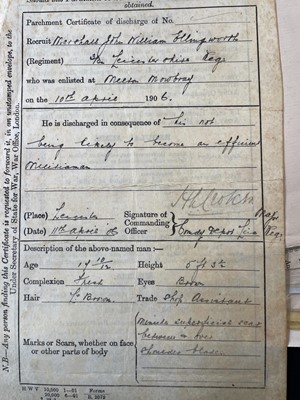 obtained.
Parchment Certificate of discharge of No.
Recruit Marshall John William Illingworth
(Regiment) The Leicestershire Reg.
who was enlisted at Melton Mowbray
on the 10th April 1906.
He is discharged in consequence of his not
being likely to become an efficient
Militiaman
(Place) Leicester Signature of
(Date) 11th April 06 Commanding Officer Comdg Depot Leic Reg.
Description of the above-named man:—
Age 17 10/12 Height 5 ft 3
Complexion Fresh Eyes Brown
Hair Brown Trade Shop Assistant
Marks or Scars, whether on face or other parts of body
superficial scar
between
N.B—Any person finding this Certificate is requested to forward it, in an unstamped envelope, to the
Under Secretary of State for War, War Office, London.
H W V 10,000 Forms